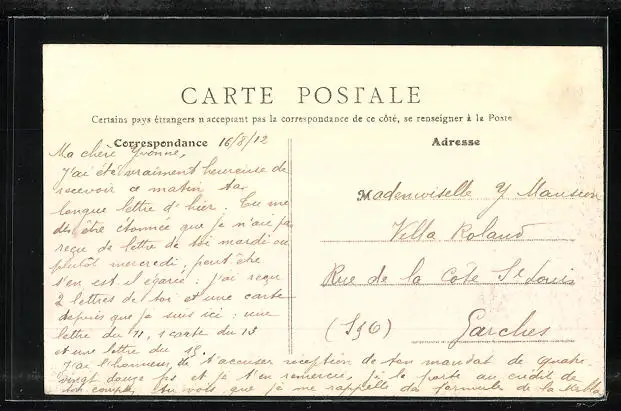 CARTE POSTALE
Certains pays étrangers n'acceptant pas la correspondance de ce côté, se renseigner à la Poste
Correspondance 16/8/12
Ma chère Yvonne,
J'ai été vraiment heureuse de
recevoir ce matin ta
longue lettre d'hier. Tu me
dis être étonnée que je n'aie pas
reçu de lettre de toi mardi ou
plutôt mercredi, peut être
s'en est il égaré : j'ai reçu
2 lettres de toi et une carte
depuis que je suis ici : une
lettre du 11, 1 carte du 13
et une lettre du 15.
J'ai l'honneur de t'accuser réception de ton mandat de quatre
vingt douze fs et je t'en remercie, je le porte au crédit de
ton compte. Tu vois que je me rappelle la formule de la
Adresse
Mademoiselle Y Mansion
Villa Roland
Rue de la Côte St Louis
(S&O) Garches